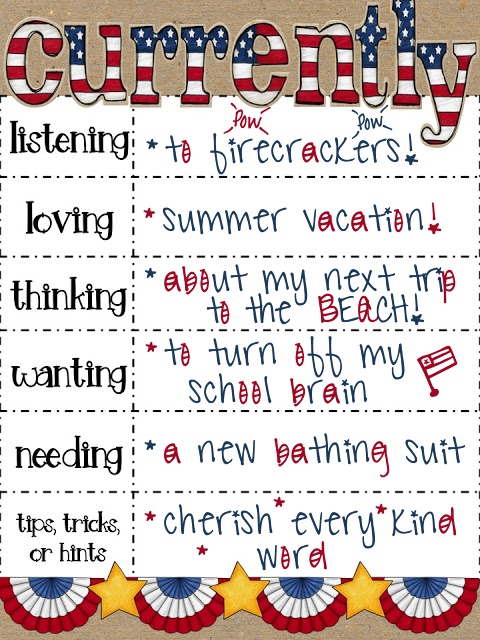 currently
Pow Pow
listening
* to firecrackers!
loving
* summer vacation!
thinking
* about my next trip
to the BEACH!
wanting
* to turn off my
school brain
needing
* a new bathing suit
tips, tricks,
or hints
* cherish * every * kind
* word